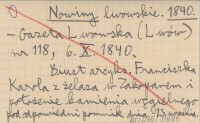 Nowiny lwowskie. 1840.
- Gazeta Lwowska (Lwów)
nr 118, 6. X. 1840.
Biust arcyks. Franciszka
Karola z żelaza w Zakopanem i
położenie kamienia węgielnego
pod odpowiedni pomnik dnia 13 września.